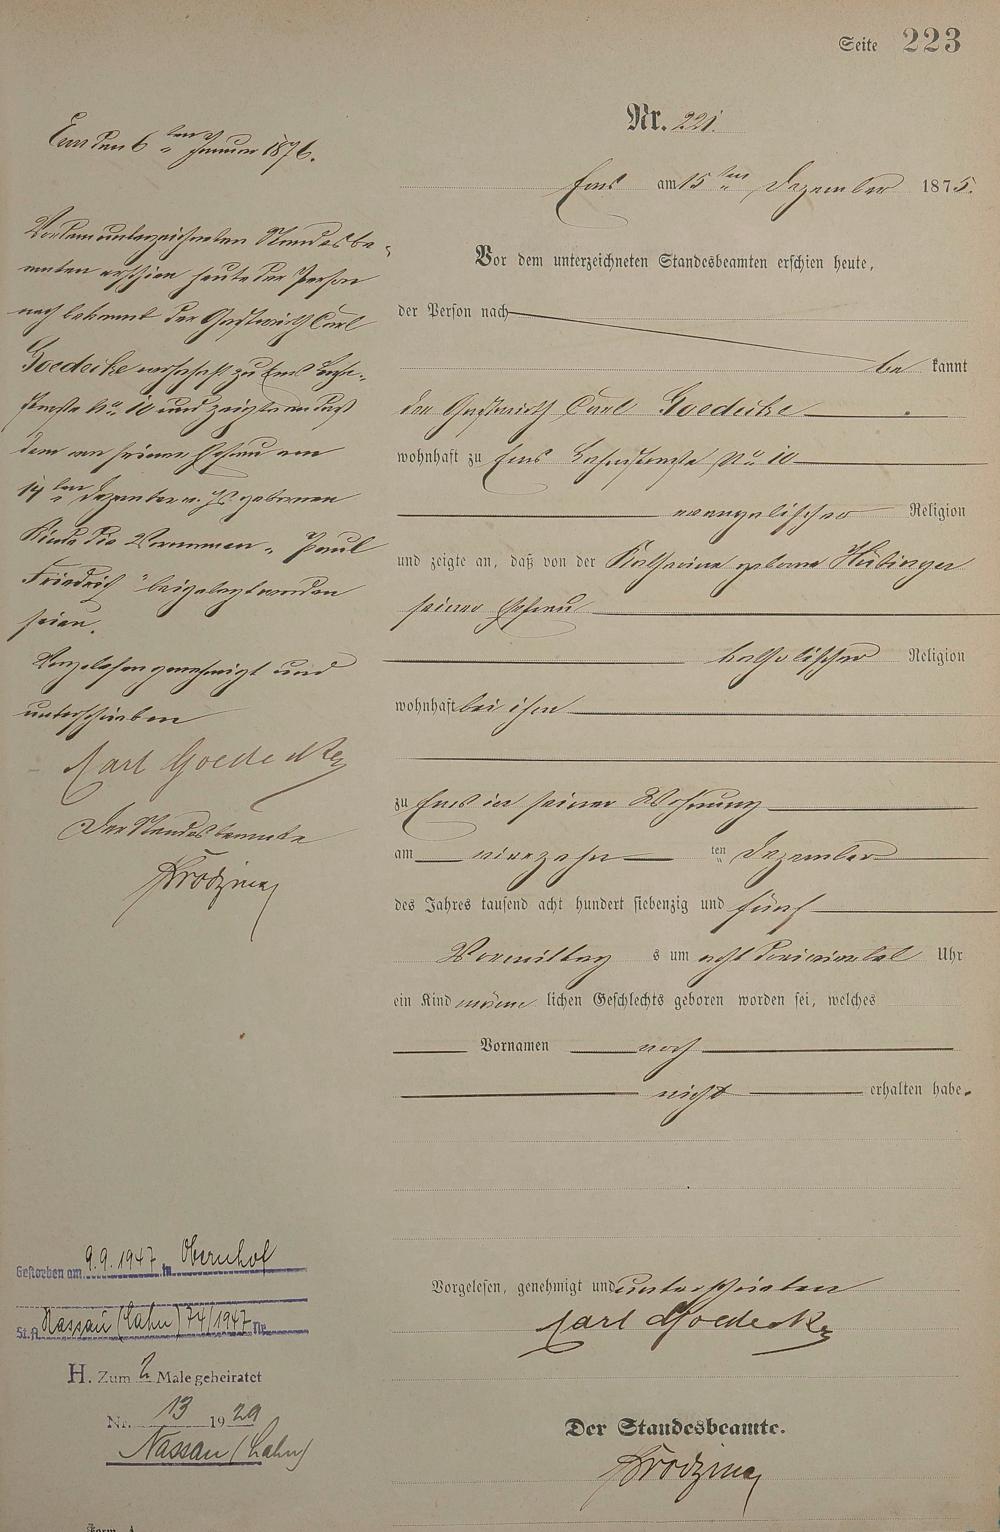 Seite 223
Nr. 221.
Ems am 15ten Dezember 1875.
Vor dem unterzeichneten Standesbeamten erschien heute,
der Person nach
be kannt
der Gastwirth Carl Goedecke
wohnhaft zu Ems Lahnstraße No 10
evangelischer Religion
und zeigte an, daß von der Katharina geborne Hübinger
seiner Ehefrau
katholischer Religion
wohnhaft bei ihm
zu Ems in seiner Wohnung
am vierzehn ten Dezember
des Jahres tausend acht hundert siebenzig und fünf
Vormittag s um acht dreiviertel Uhr
ein Kind männ lichen Geschlechts geboren worden sei, welches
Vornamen noch
nicht erhalten habe.
Vorgelesen, genehmigt und unterschrieben
Carl Goedecke
Der Standesbeamte.
Ems den 6ten Januar 1876.
Vor dem unterzeichneten Standesbe-
amten erschien heute der Person
nach bekannt der Gastwirth Carl
Goedecke wohnhaft zu Ems Lahn-
straße No 10 und zeigte an daß
dem von seiner Ehefrau am
14ten Dezember v. Js. gebornen
Kinde die Vornamen „Paul
Friedrich" beigelegt worden
seien.
Vorgelesen genehmigt und
unterschrieben
Carl Goedecke
Der Standesbeamte
Gestorben am 9.9.1947 in Obernhof
St.A. Nassau (Lahn) 74/1947 Nr.
H. Zum 2. Male geheiratet
Nr. 13 1929
Nassau (Lahn)
Form. A